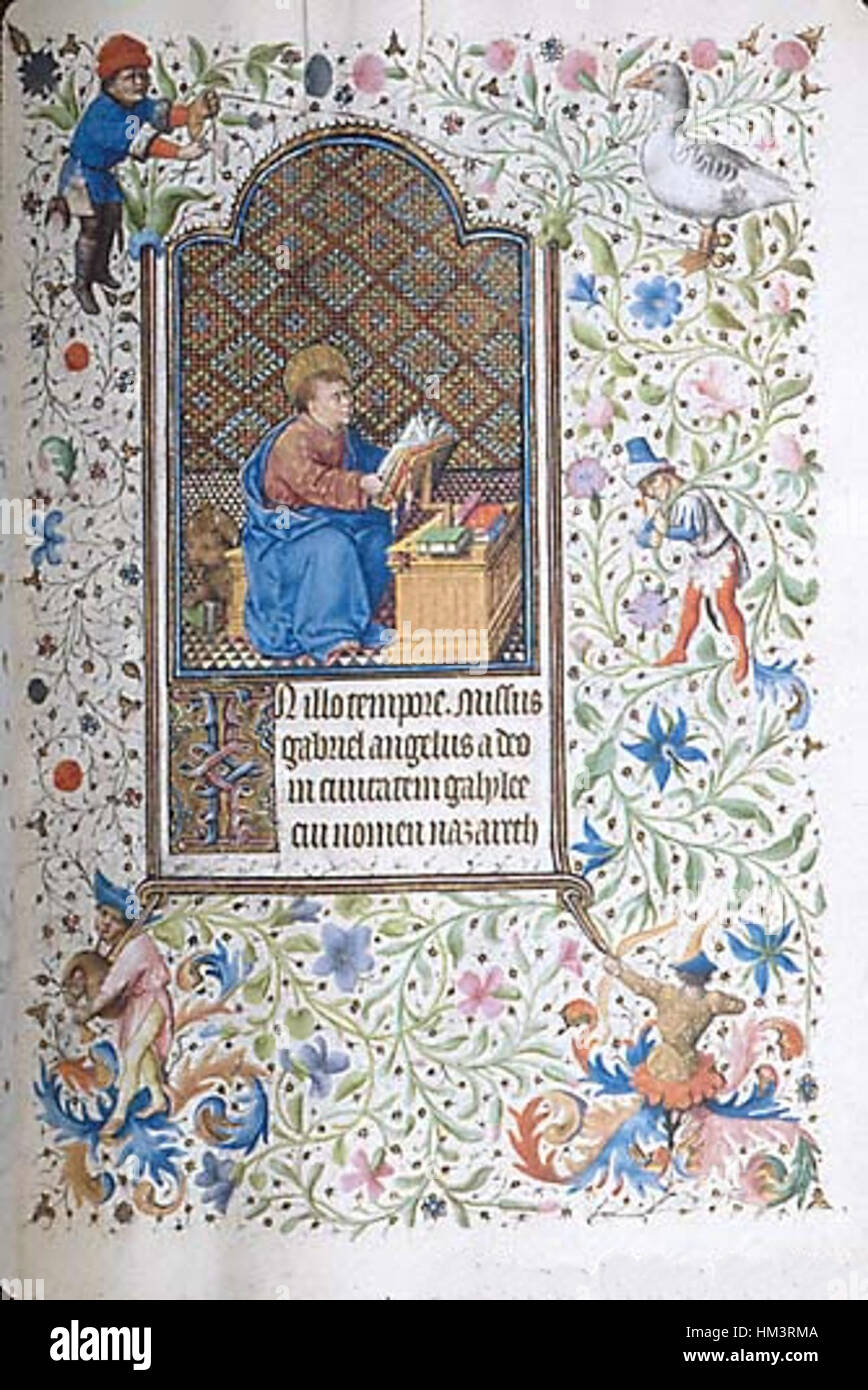 IN illo tempore. Missus
gabriel angelus a deo
in civitatem galylee
cui nomen nazareth
alamy
Image ID: HM3RMA
www.alamy.com